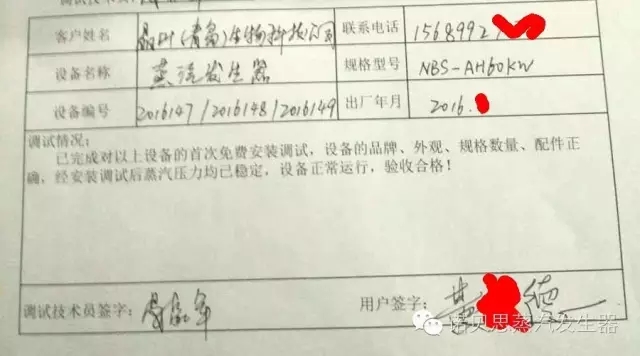 客户姓名 (青岛)生物科技公司 联系电话 15689927
设备名称 蒸汽发生器 规格型号 NBS-AH60KW
设备编号 2016147/2016148/2016149 出厂年月 2016.
调试情况:
已完成对以上设备的首次免费安装调试，设备的品牌、外观、规格数量、配件正
确，经安装调试后蒸汽压力均已稳定，设备正常运行，验收合格！
调试技术员签字: 用户签字: 德
诺贝思蒸汽发生器